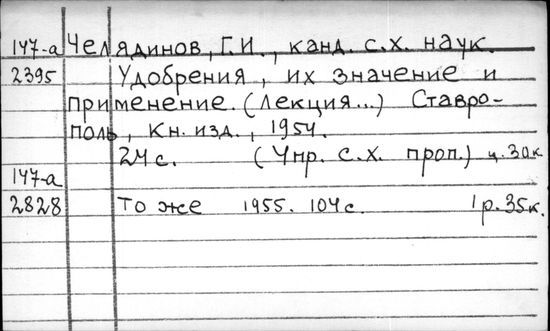 147-а Челядинов, Г.И., канд. с.х. наук.
2395 Удобрения, их значение и
применение. (Лекция...) Ставро-
поль, Кн. изд., 1954.
24 с. (Упр. с.х. проп.) ц. 30к
147-а
2828 То же 1955. 104 с. 1 р. 35к.